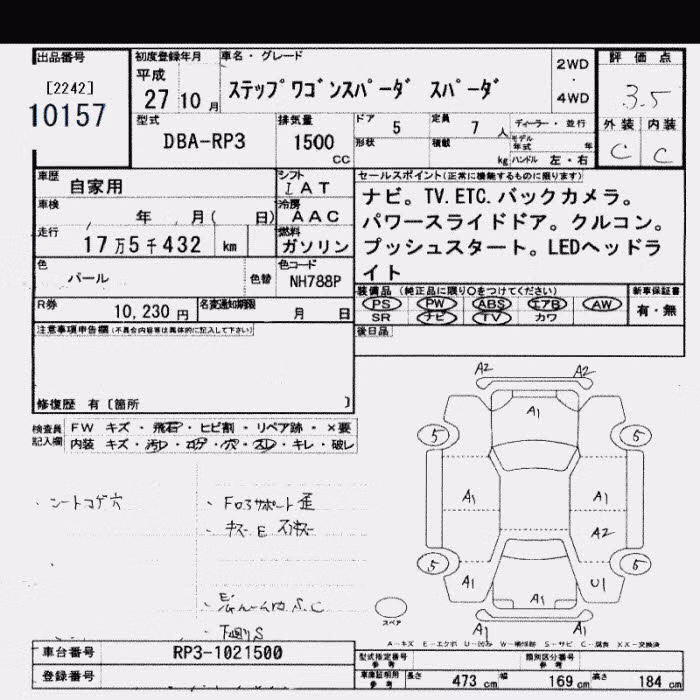 出品番号
[2242]
10157
初度登録年月
平成
27 10 月
車名・グレード
ステップワゴンスパーダ スパーダ
2WD
・
4WD
評価点
3.5
外装 内装
C C
型式
DBA-RP3
排気量
1500
CC
ドア 5
定員 7 人
形状
積載 kg
ディーラー・並行
モデル年式 年
ハンドル 左・右
車歴
自家用
シフト
IAT
車検
年 月( 日)
冷房
AAC
走行
17万5千432 km
燃料
ガソリン
セールスポイント(正常に機能するものに限ります)
ナビ。TV.ETC.バックカメラ。
パワースライドドア。クルコン。
プッシュスタート。LEDヘッドラ
イト
色
パール
色替
色コード
NH788P
装備品 (純正品に限り○をつけてください)
PS PW ABS エアB AW
SR ナビ TV カワ
新車保証書
有・無
R券
10,230 円
名変通知期限
月 日
後日品
注意事項申告欄(不具合内容等は具体的に記入して下さい)
修復歴 有〔箇所 〕
検査員記入欄
FW キズ・飛石・ヒビ割・リペア跡・×要
内装 キズ・汚レ・コゲ・穴・スレ・キレ・破レ
・シートコゲ穴
・下回りS
A2 A2
A1
5 5
A1 A1
A2
5 5
A1 U1
A1
A1 A1
スペア
A-キズ E-エクボ U-凹み W-補修跡 S-サビ C-腐食 XX-交換済
車台番号
RP3-1021500
登録番号
型式指定番号
参考
類別区分番号
参考
車庫証明用
参考
長さ 473 cm
幅 169 cm
高さ 184 cm